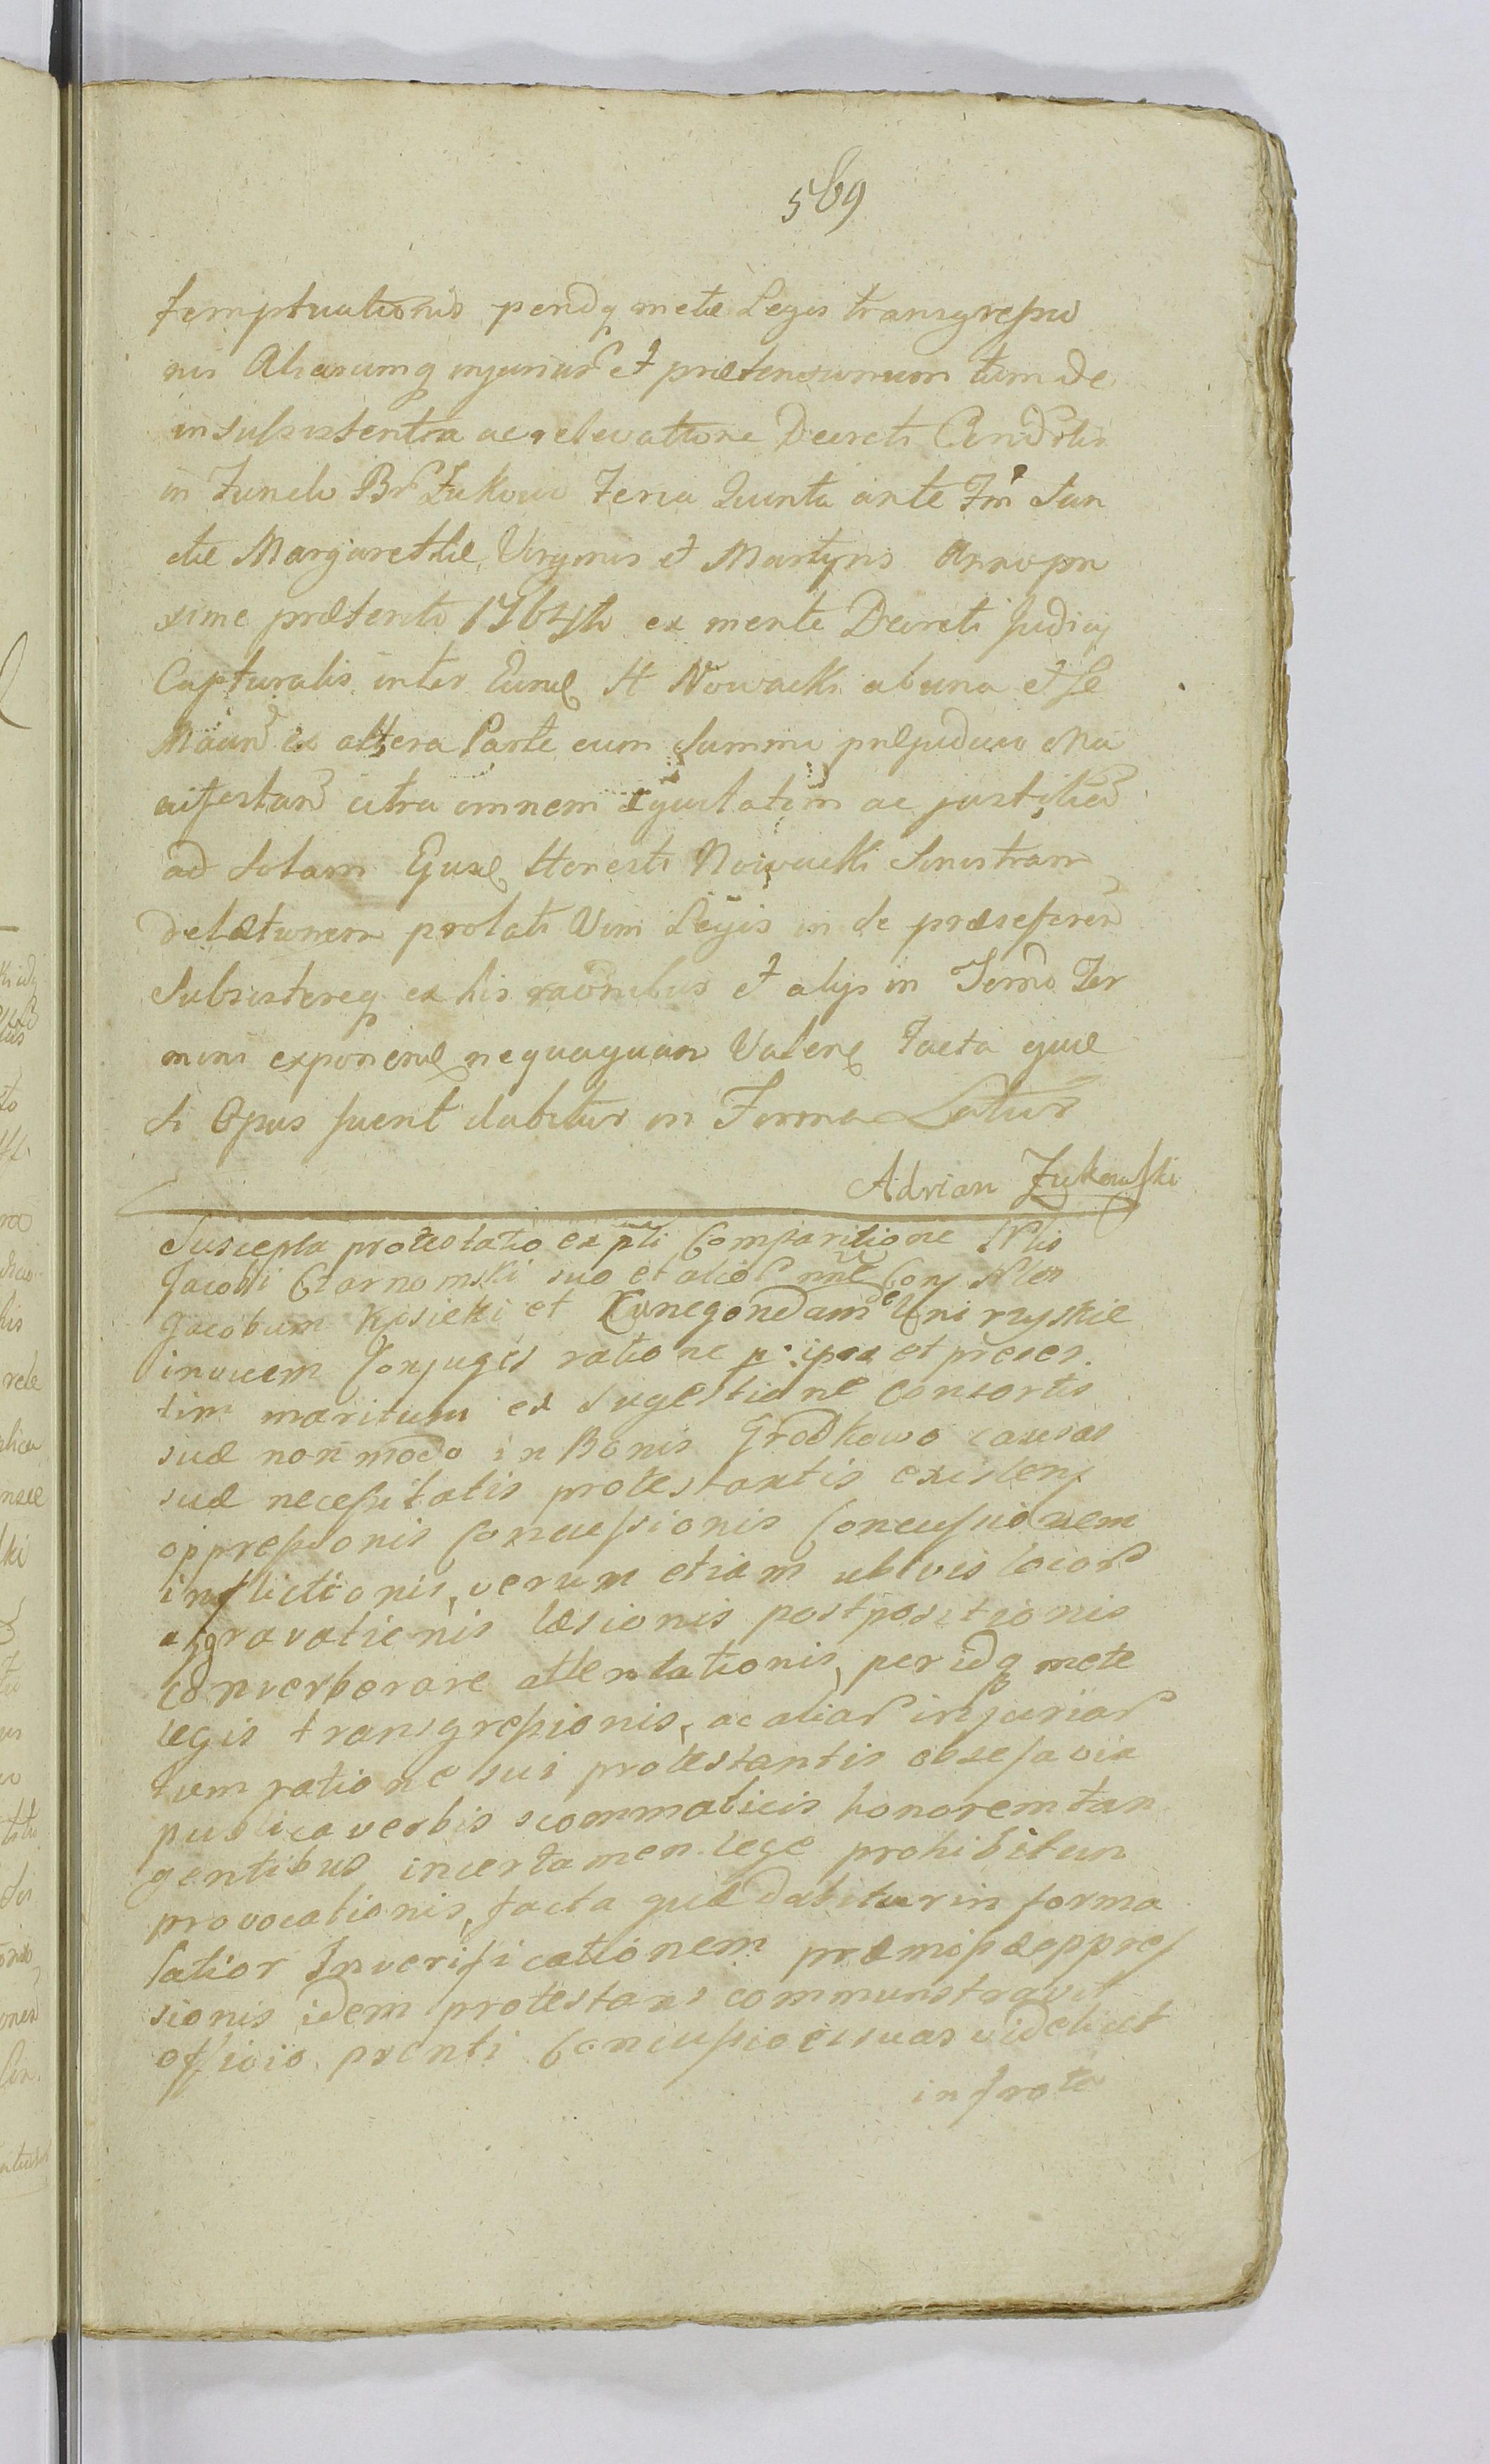 569
temptuationis peridq metæ Legis transgressio
nis Aliarumq injuriar et prætensionum tum de
insubsistentia ac relevatione Decreti Condêlis
in Fundo Br Zukowo Feria Quinta ante Fm San
ctæ Margarethæ Virginis et Martyris Anno pro
xime præterito 1764to ex mente Decreti Judicij
Capturalis inter Eund H Nowacki ab una et Se
ex altera Parte cum Summo præjudicio Ma
nifestan citra omnem æquitatem ac justitiam
ad Solam Ejusd Honesti Nowacki Sinistram
delationem prolati Vim Legis in se præseferen
Subsistereq ex his raõnibus et alys in Termõ Ter
mini exponend nequaquam Valen Facta quæ
si Opus fuerit dabitur in Forma Latiur
Adrian Zukowski
Suscepta protestatio ex pti Comparitione Nlis
Jacobi Czarnomski suo et alior nõe Con Nlem
Jacobum Kisicki et Cunegondam de
invicem Conjuges ratione p: ipsos et preser
tim maritum ex sugestione consortis
suæ non modo in Bonis Grodkowo causas
suæ necessitatis protestantis existen
oppressionis Concussionis Concussionem
inflictionis, verum etiam ubivis locor
aggravationis læsionis postpositionis
converberare attentationis, per idq mete
legis transgressionis, ac aliar injuriar
tum ratione sui protestantis obsessa via
publica verbis scommaticis honorem tan
gentibus in certamen lege prohibitum
provocationis, facta quæ dabitur in forma
latior In verificationem præmissæ oppres
sionis idem protestans communstravit
officio prænti Concussiones suas videlicet
infrote